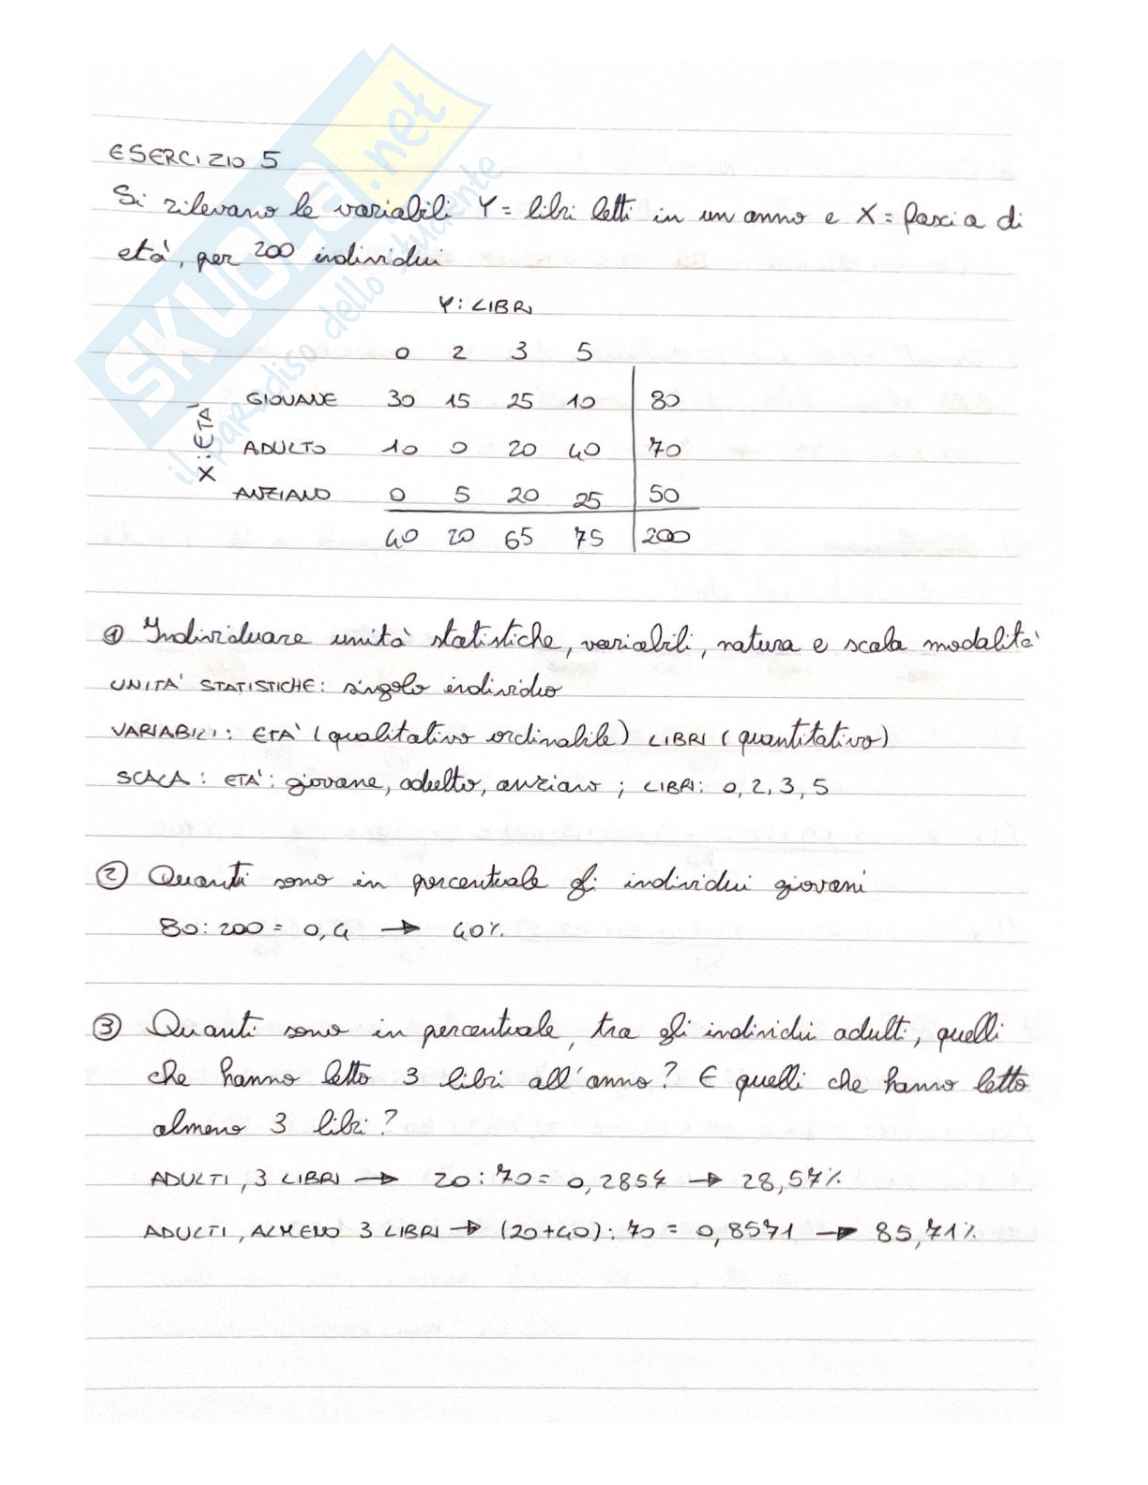 SKUOLA.net
il paradiso dello studente
ESERCIZIO 5
Si rilevano le variabili Y = libri letti in un anno e X = fascia di
età, per 200 individui
Y: LIBRI
0 2 3 5
X: ETÀ
GIOVANE 30 15 25 10 80
ADULTO 10 0 20 40 70
ANZIANO 0 5 20 25 50
40 20 65 75 200
① Individuare unità statistiche, variabili, natura e scala modalità
UNITÀ STATISTICHE: singolo individuo
VARIABILI: ETÀ (qualitativo ordinabile) LIBRI (quantitativo)
SCALA: ETÀ: giovane, adulto, anziano; LIBRI: 0, 2, 3, 5
② Quanti sono in percentuale gli individui giovani
80:200 = 0,4 → 40%
③ Quanti sono in percentuale, tra gli individui adulti, quelli
che hanno letto 3 libri all'anno? E quelli che hanno letto
almeno 3 libri?
ADULTI, 3 LIBRI → 20:70 = 0,2857 → 28,57%
ADULTI, ALMENO 3 LIBRI → (20+40):70 = 0,8571 → 85,71%